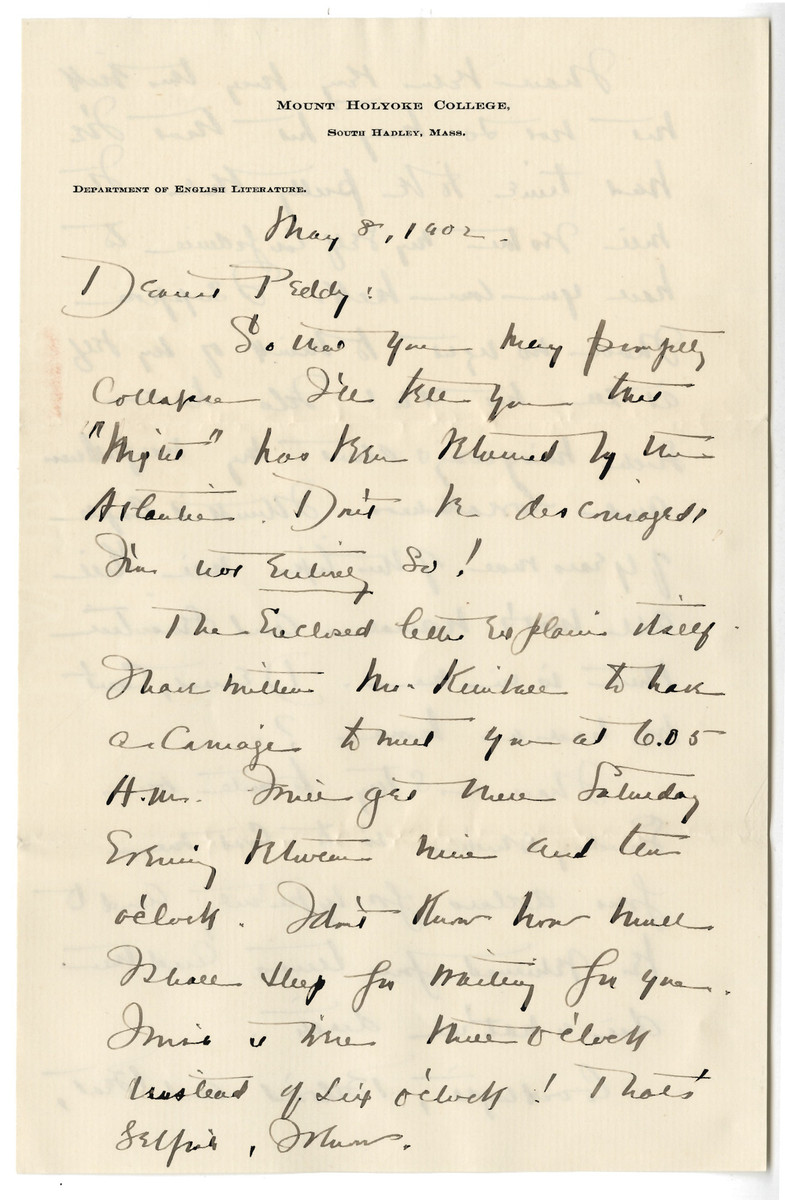 MOUNT HOLYOKE COLLEGE,
SOUTH HADLEY, MASS.
DEPARTMENT OF ENGLISH LITERATURE.
May 8, 1902.
Dearest Peddy:
So that you may promptly
collapse I'll tell you that
"Night" has been returned by the
Atlantic. Don't be discouraged!
I'm not entirely so!
The enclosed letter explains itself.
I have written Mr. Kimball to have
a carriage to meet you at 6.05
A.M. I will get there Saturday
evening between nine and ten
o'clock. I don't know how much
I shall sleep for waiting for you.
I wish it were three o'clock
instead of six o'clock! That's
selfish, I know.